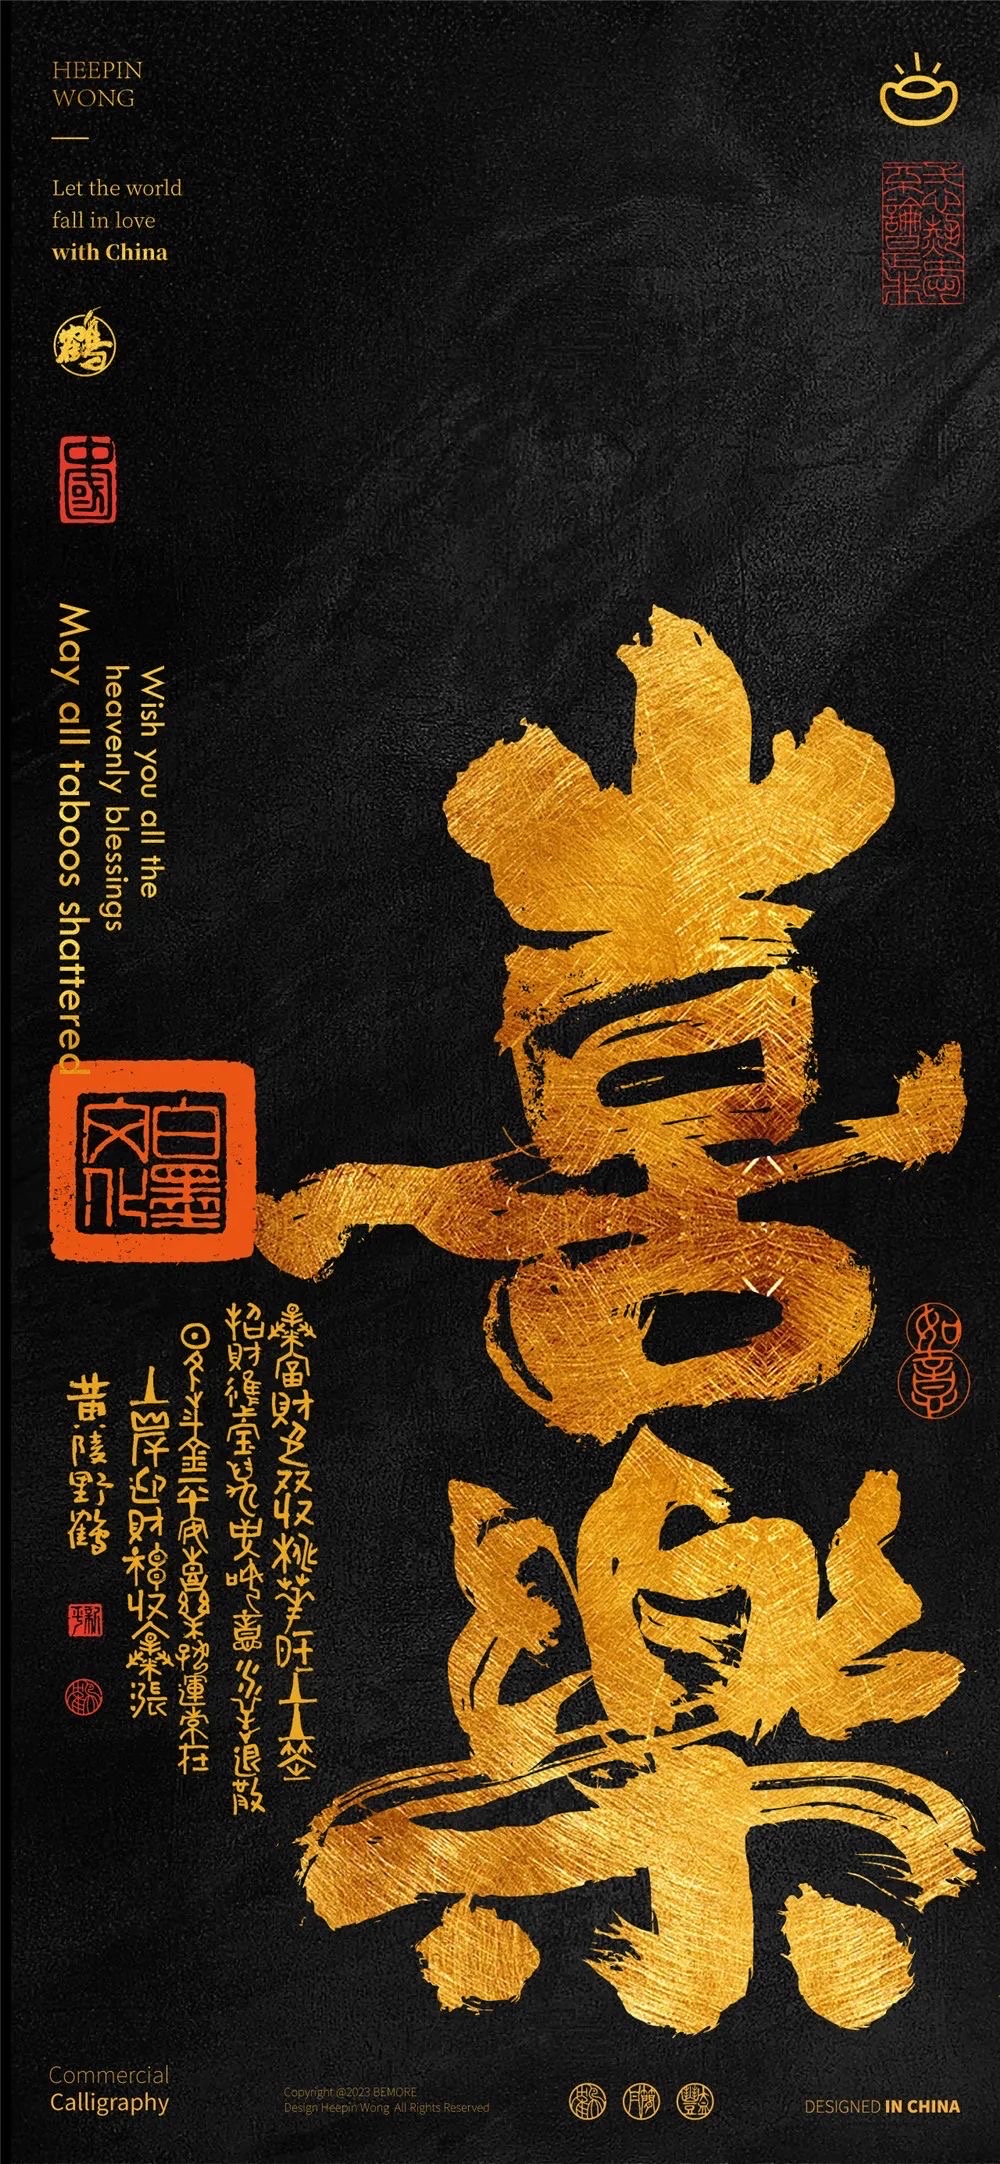 HEEPIN
WONG
Let the world
fall in love
with China
鶴
中國
Wish you all the
heavenly blessings
May all taboos shattered
喜樂
白墨
文化
如意
暴富財多双收桃華旺上签
招財進宝
日多斗金平安喜樂好運常在
上岸迎財福收入暴漲
黄陵野鶴
Commercial
Calligraphy
Copyright @2023 BEMORE
Design Heepin Wong All Rights Reserved
DESIGNED IN CHINA